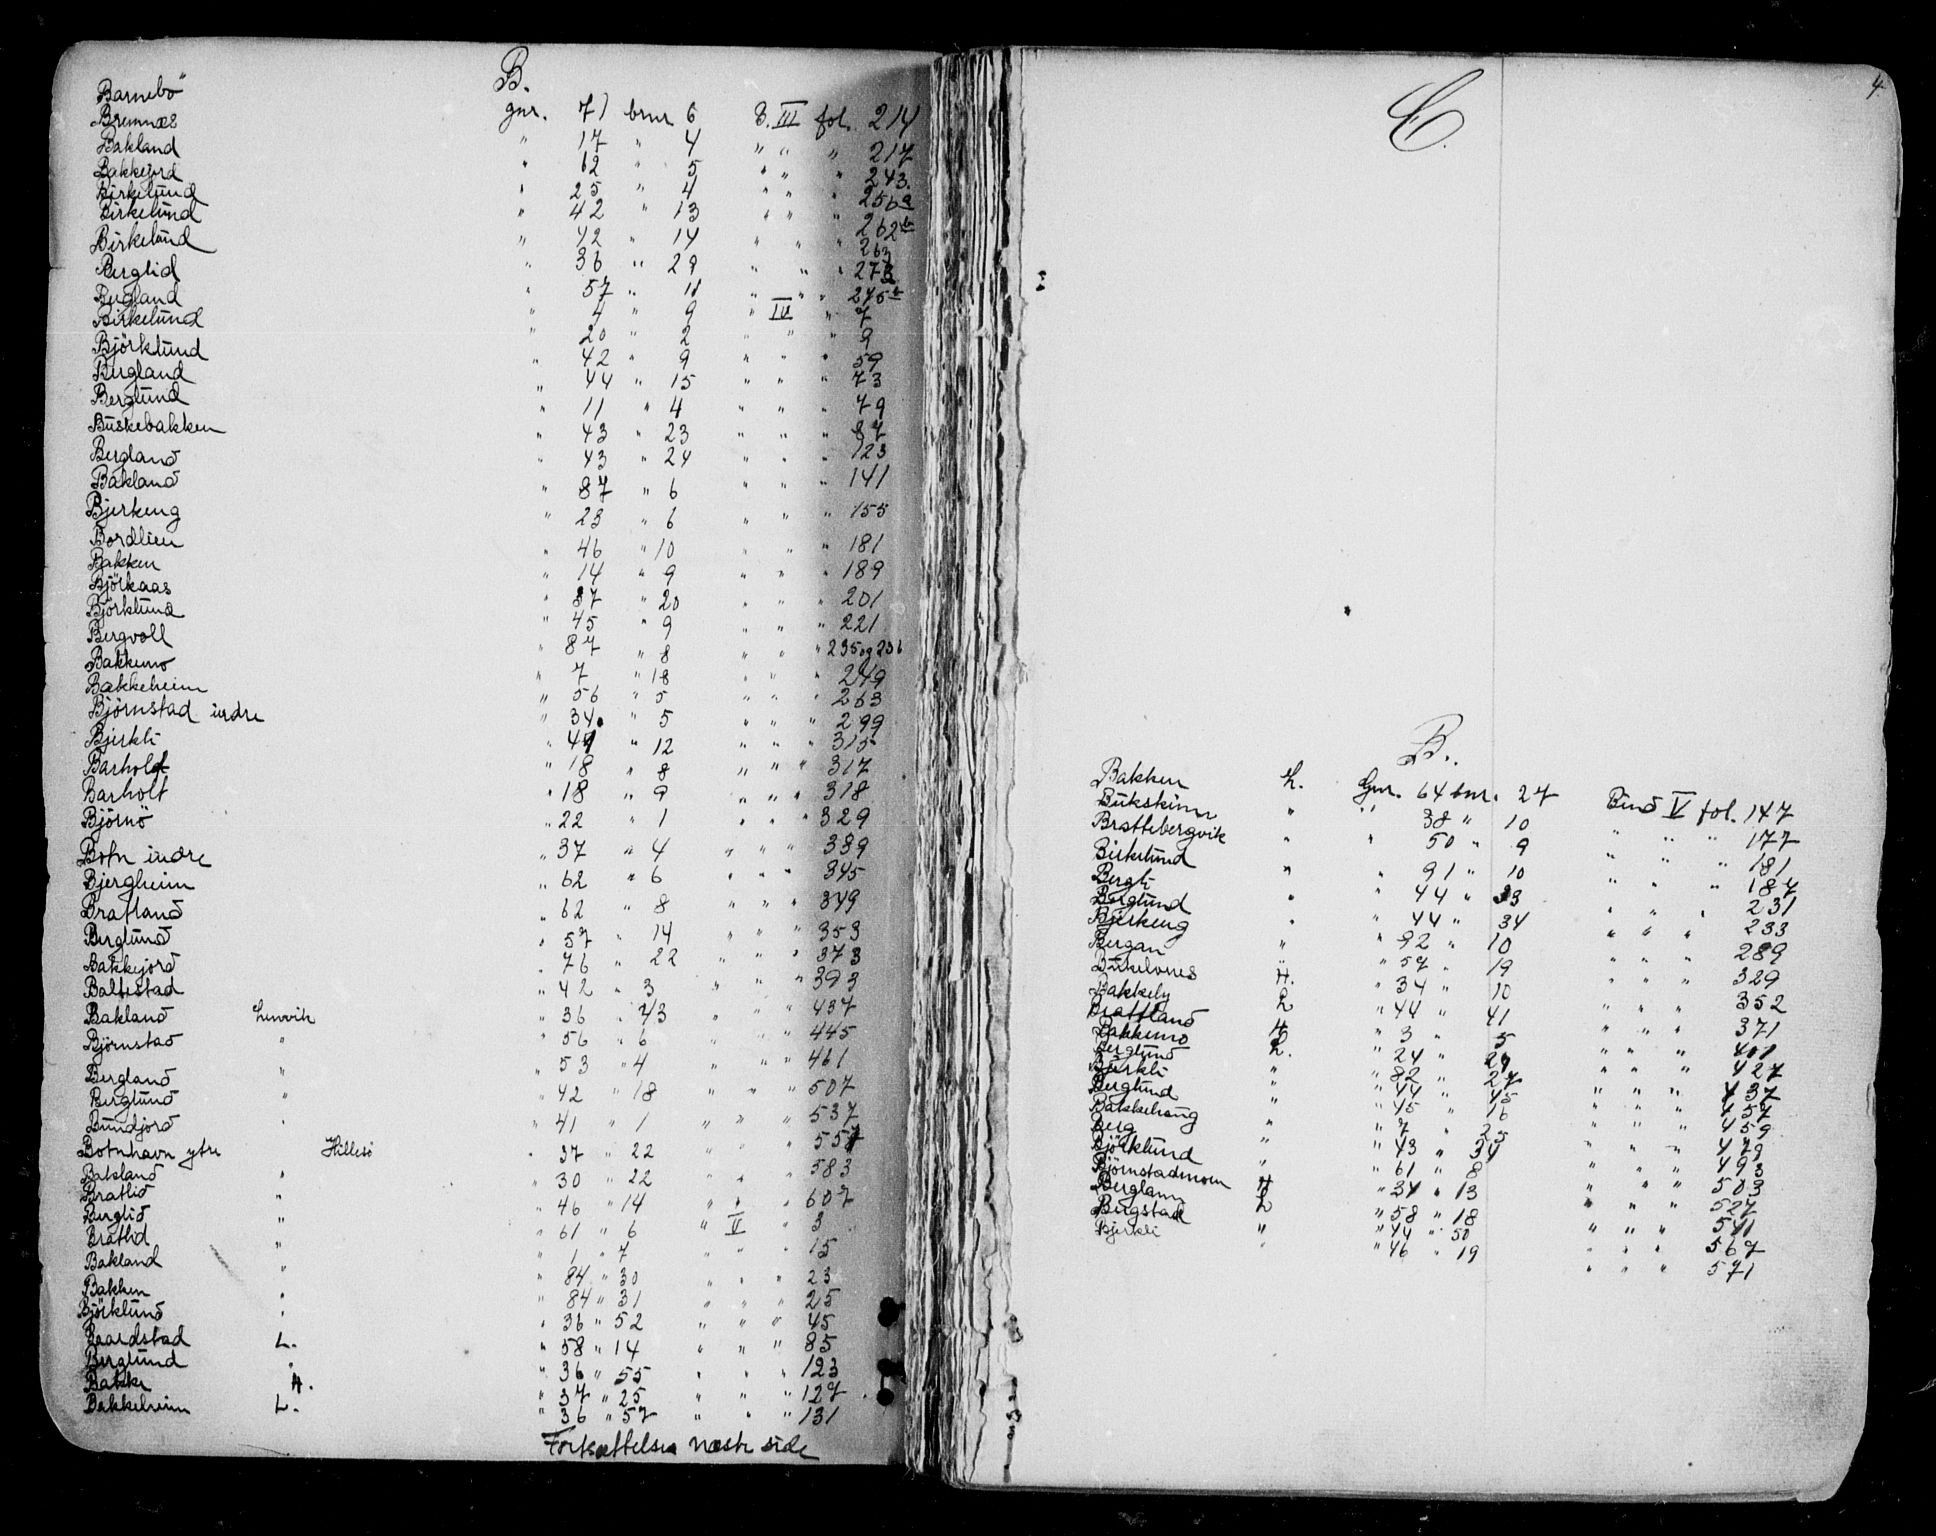 B.
Barnebö gnr. 71 brnr 6 B. III fol. 214
Bremnæs " 17 " 4 " " " 217
Bakland " 62 " 5 " " " 243.
Bakkejord " 25 " 4 " " " 256a
Birkelund " 42 " 13 " " " 262b
Birkelund " 42 " 14 " " " 263
Birkelund " 36 " 29 " " " 273
Berglid " 57 " 11 " " " 275b
Bergland " 4 " 9 " IV " 7
Birkelund " 20 " 2 " " " 9
Björklund " 42 " 9 " " " 59
Bergland " 44 " 15 " " " 73
Berglund " 11 " 4 " " " 79
Buskebakken " 43 " 23 " " " 87
Bergland " 43 " 24 " " " 123
Bakland " 87 " 6 " " " 141
Bjerkeng " 23 " 6 " " " 155
Bordlien " 46 " 10 " " " 181
Bakken " 14 " 9 " " " 189
Björkaas " 37 " 20 " " " 201
Björklund " 45 " 9 " " " 221
Bergvoll " 87 " 8 " " " 235 og 236
Bakkemo " 7 " 18 " " " 249
Bakkeheim " 56 " 5 " " " 263
Björnstad indre " 34 " 5 " " " 299
Bjerkli " 41 " 12 " " " 315
Barholdt " 18 " 8 " " " 317
Barholt " 18 " 9 " " " 318
Björnö " 22 " 1 " " " 329
Botn indre " 37 " 4 " " " 339
Bjergheim " 62 " 6 " " " 345
Bratland " 62 " 8 " " " 349
Berglund " 57 " 14 " " " 353
Bakkejord " 76 " 22 " " " 373
Baltestad " 42 " 3 " " " 393
Bakland Lenvik " 36 " 43 " " " 437
Björnstad " " 56 " 6 " " " 445
Bergland " " 53 " 4 " " " 461
Berglund " " 42 " 18 " " " 507
Bundjord " " 41 " 1 " " " 537
Botnhavn ytre Hillesö " 37 " 22 " " " 557
Bakland " " 30 " 22 " " " 583
Bratlid " " 46 " 14 " " " 607
Berglid " " 61 " 6 " V " 3
Bratlid " " 1 " 7 " " " 15
Bakland " " 84 " 30 " " " 23
Bakken " " 84 " 31 " " " 25
Björklund " " 36 " 52 " " " 45
Baardstad L. " 58 " 14 " " " 85
Berglund " " 36 " 55 " " " 123
Bakke H. " 37 " 25 " " " 127
Bakkeheim L. " 36 " 57 " " " 131
Fortsættelse næste side
4.
C.
B.
Bakken L. Gnr. 64 bnr. 27 Bind V fol. 147
Bukskinn " " 38 " 10 " " " 177
Brattebergvik " " 50 " 9 " " " 181
Birkelund " " 91 " 10 " " " 187
Bergli " " 44 " 33 " " " 231
Berglund " " 44 " 34 " " " 233
Bjerkeng " " 92 " 10 " " " 289
Bergan " " 57 " 19 " " " 329
Bukelvnes H. " 34 " 10 " " " 352
Bakkely L " 44 " 41 " " " 371
Brattland H " 3 " 5 " " " 401
Bakkemo L. " 24 " 29 " " " 427
Berglund " " 82 " 27 " " " 437
Bjerkli " " 44 " 45 " " " 457
Berglund " " 45 " 16 " " " 459
Bakkehaug " " 7 " 25 " " " 479
Berg " " 43 " 34 " " " 493
Björklund " " 61 " 8 " " " 503
Björnstadmoen H " 34 " 13 " " " 527
Berglann L " 58 " 18 " " " 541
Bergstad " " 44 " 50 " " " 567
Bjerkli " " 46 " 19 " " " 571